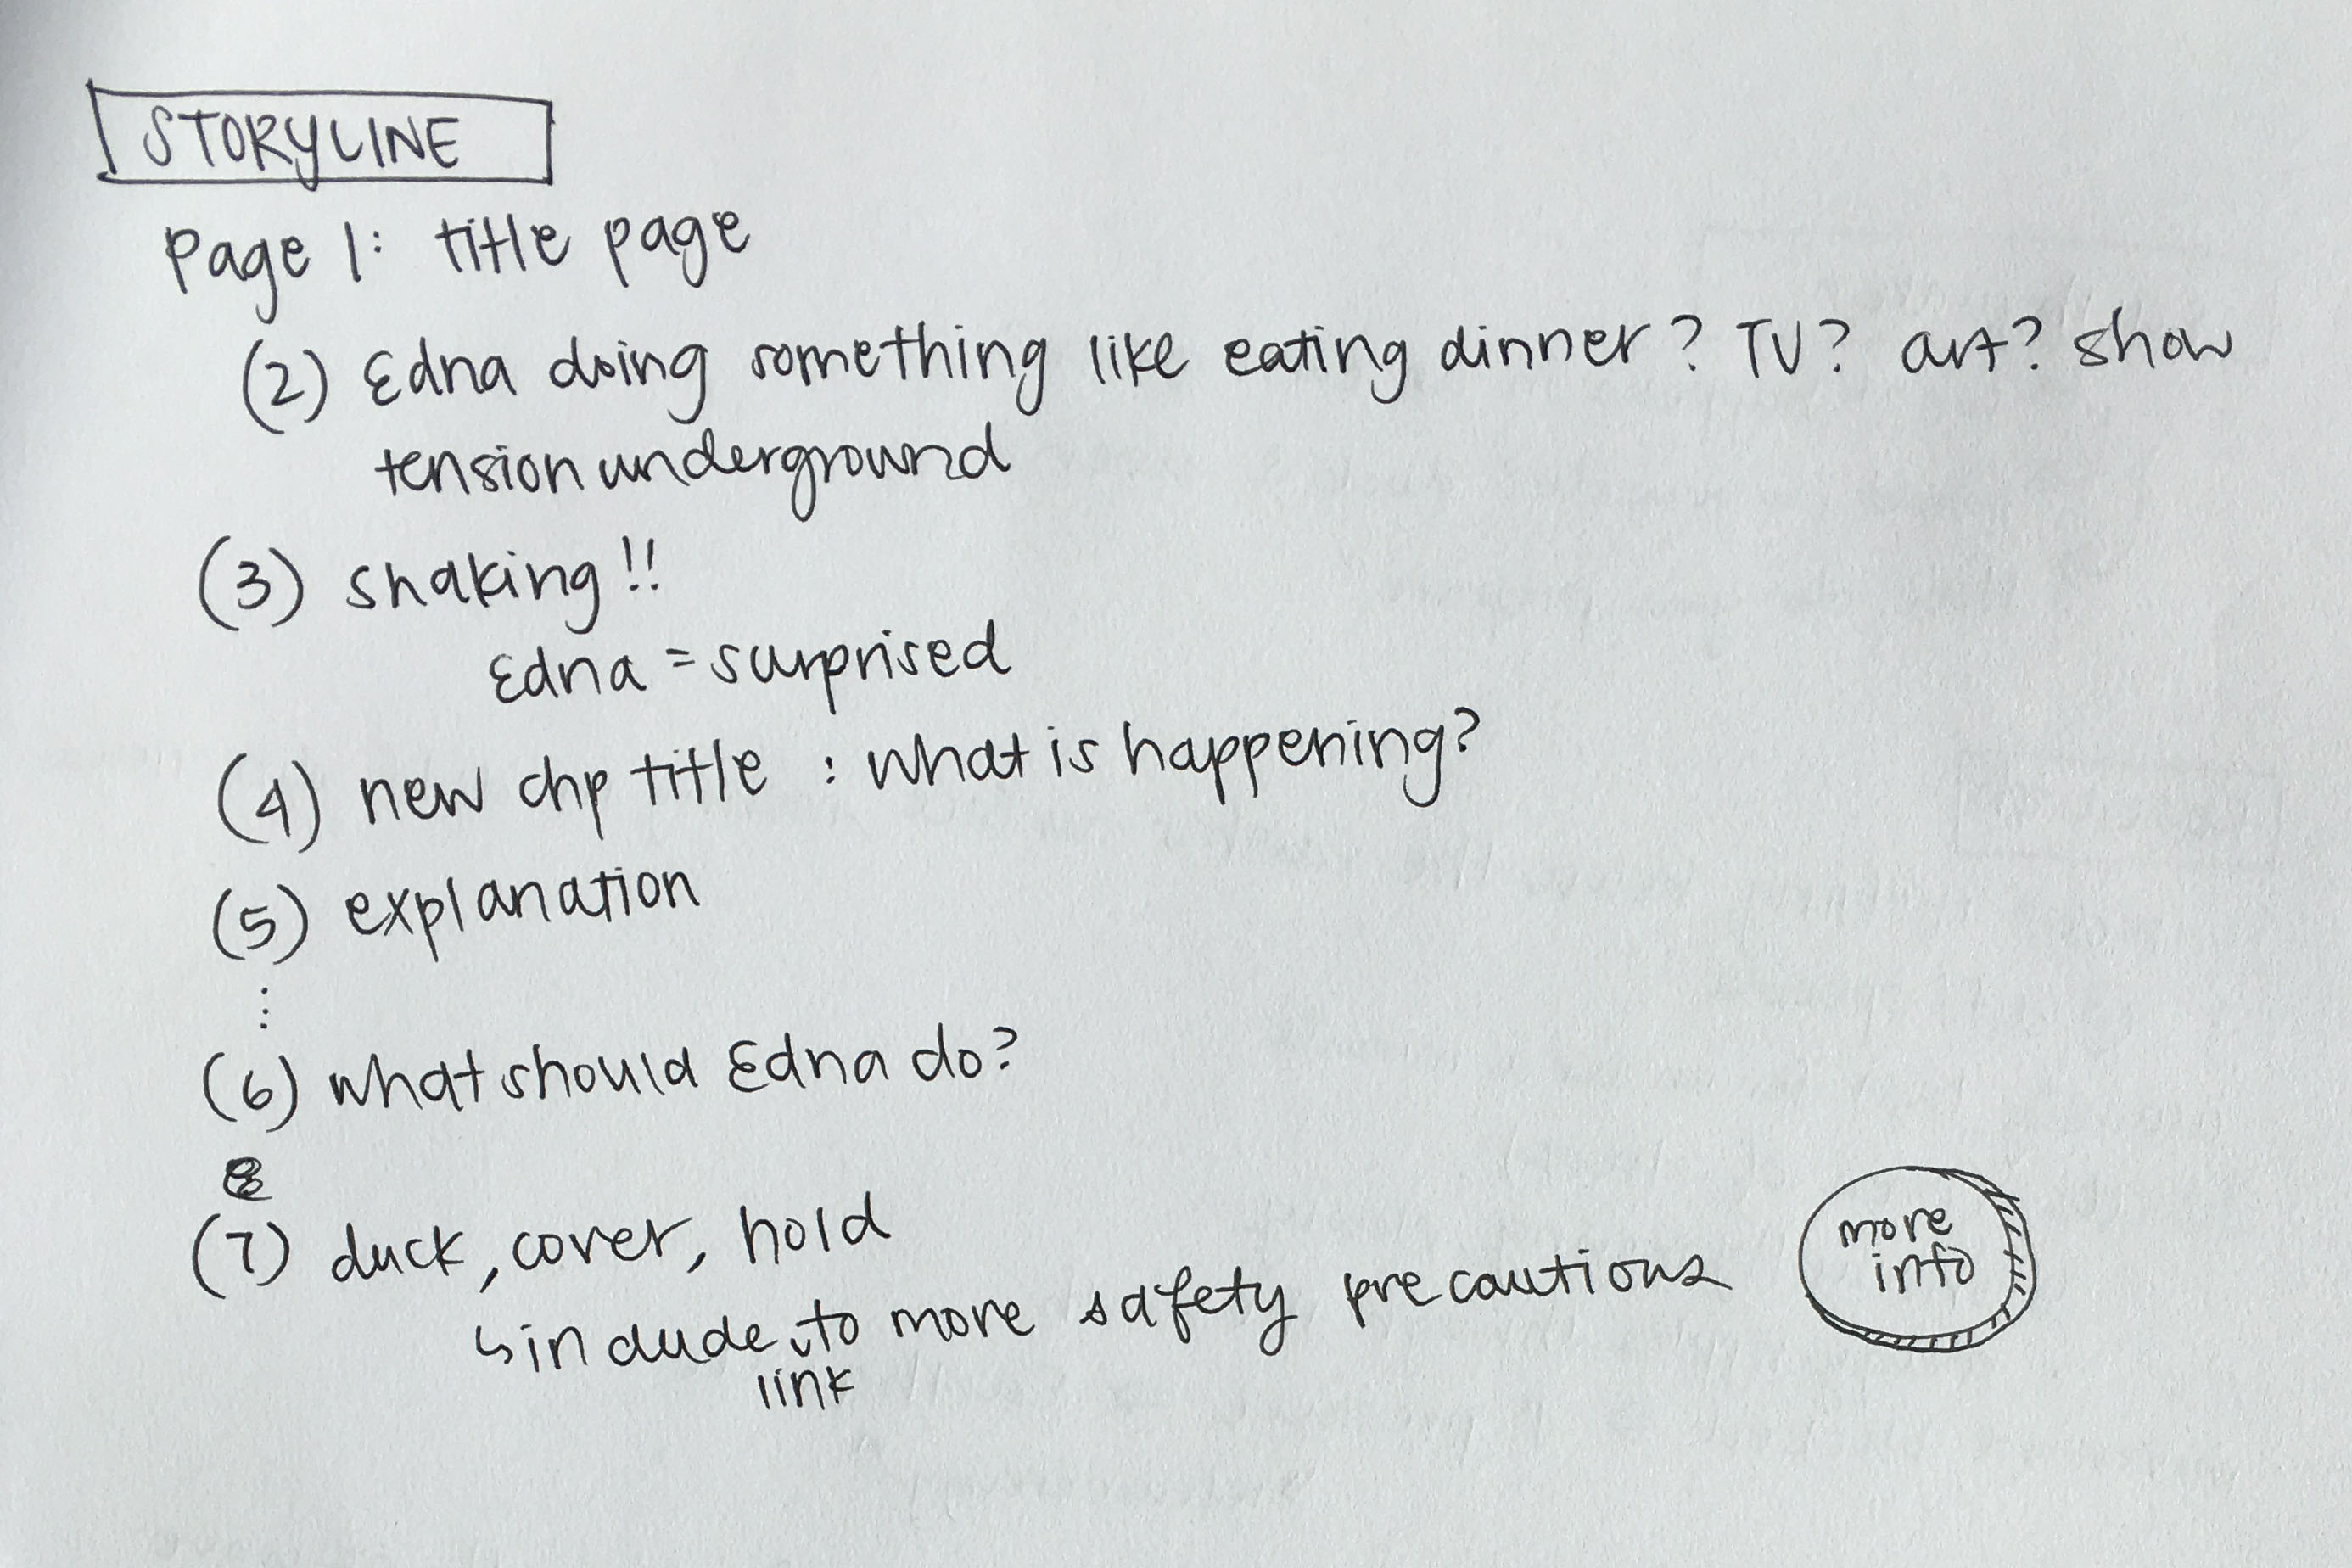 STORYLINE
Page 1: title page
(2) Edna doing something like eating dinner? TV? art? show
tension underground
(3) shaking!!
Edna = surprised
(4) new chp title : what is happening?
(5) explanation
⋮
(6) what should Edna do?
(7) duck, cover, hold
↳ include to more safety precautions
link
more
info